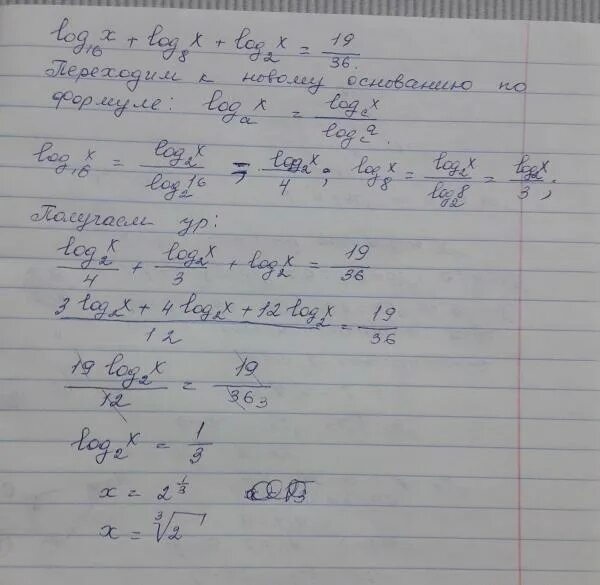 log₁₆x + log₈x + log₂x = 19/36.
Переходим к новому основанию по
формуле: logₐx = log_c x / log_c a.
log₁₆x = log₂x / log₂16 = log₂x / 4; log₈x = log₂x / log₂8 = log₂x / 3;
Получаем ур:
log₂x / 4 + log₂x / 3 + log₂x = 19/36
3 log₂x + 4 log₂x + 12 log₂x / 12 = 19/36
19 log₂x / 12 = 19 / 36 3
log₂x = 1/3
x = 2^(1/3)
x = ∛2